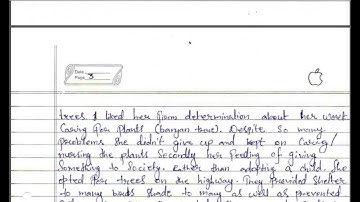 Date
Page 3
trees. I liked her firm determination about her work
Caring for plants (banyan tree). Despite so many
problems she didn't give up and kept on caring/
nursing the plants Secondly her feeling of giving
Something to Society. Rather than adopting a child, She
opted for trees on the highway. They provided Shelter
to many birds shade to many as well as prevented